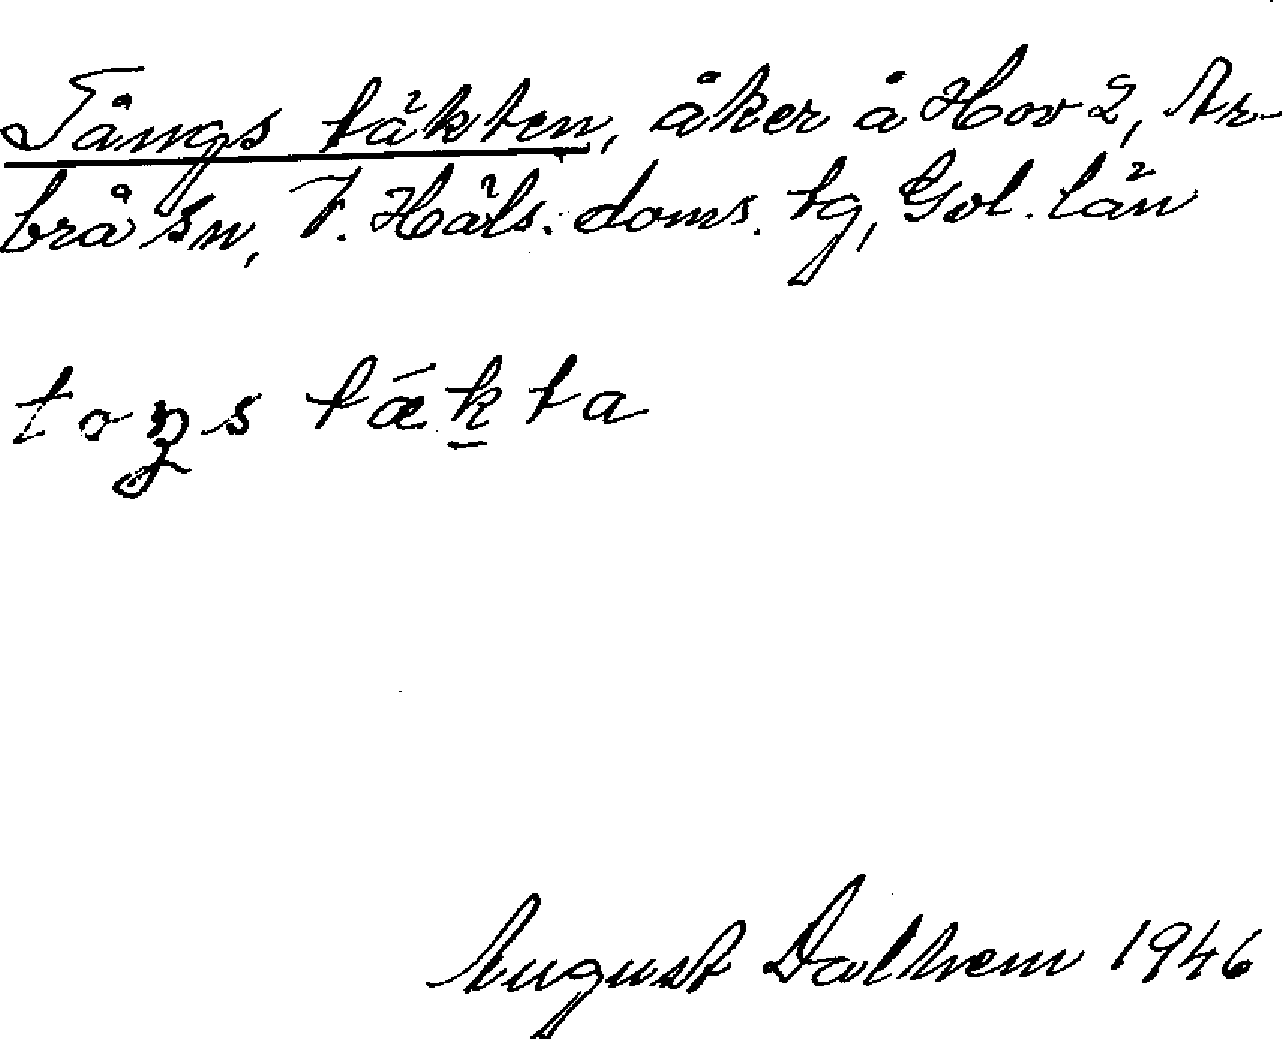 Tångs täkten, åker å Hov 2, Ar-
brå sn, V. Häls. doms. tg, Gvl. län
toŋs tǽk̲ta
August Dalhem 1946